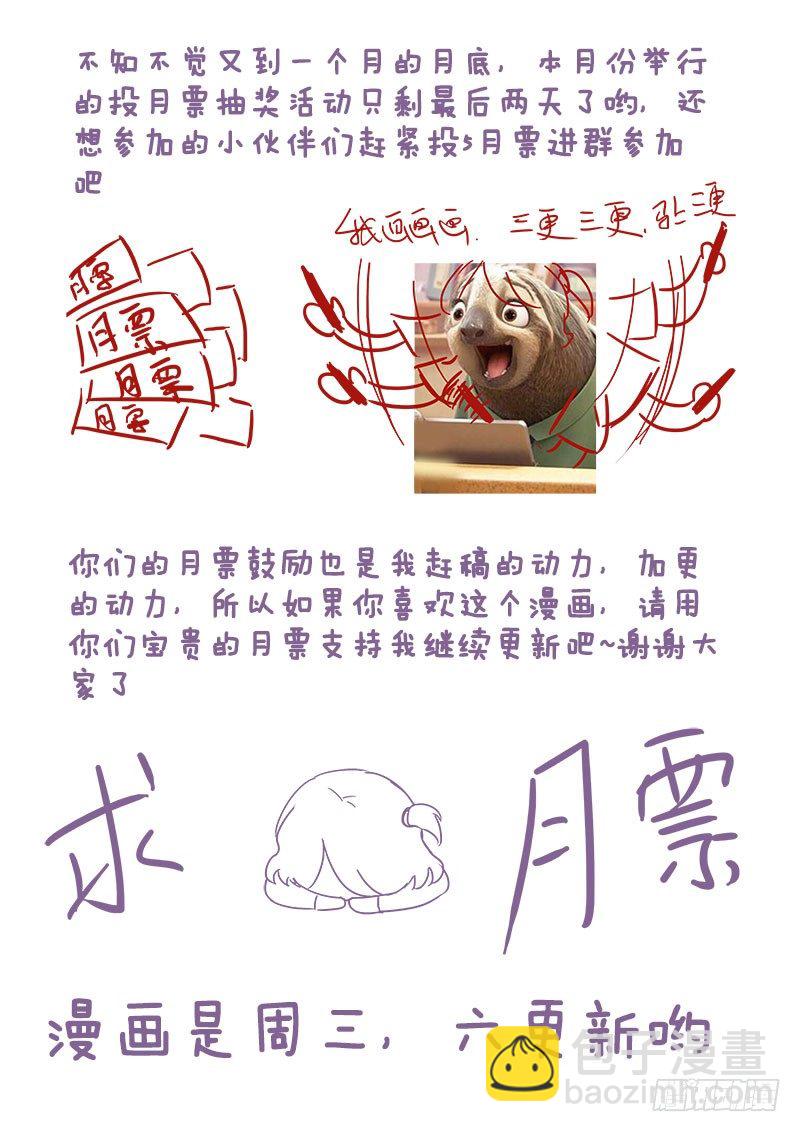 不知不觉又到一个月的月底，本月份举行
的投月票抽奖活动只剩最后两天了哟，还
想参加的小伙伴们赶紧投5月票进群参加
吧
我画画画. 三更三更,马上三更
月票
月票
月票
月票
你们的月票鼓励也是我赶稿的动力，加更
的动力，所以如果你喜欢这个漫画，请用
你们宝贵的月票支持我继续更新吧~谢谢大
家了
求 月票
漫画是周三，六更新哟
包子漫畫
baozimh.com